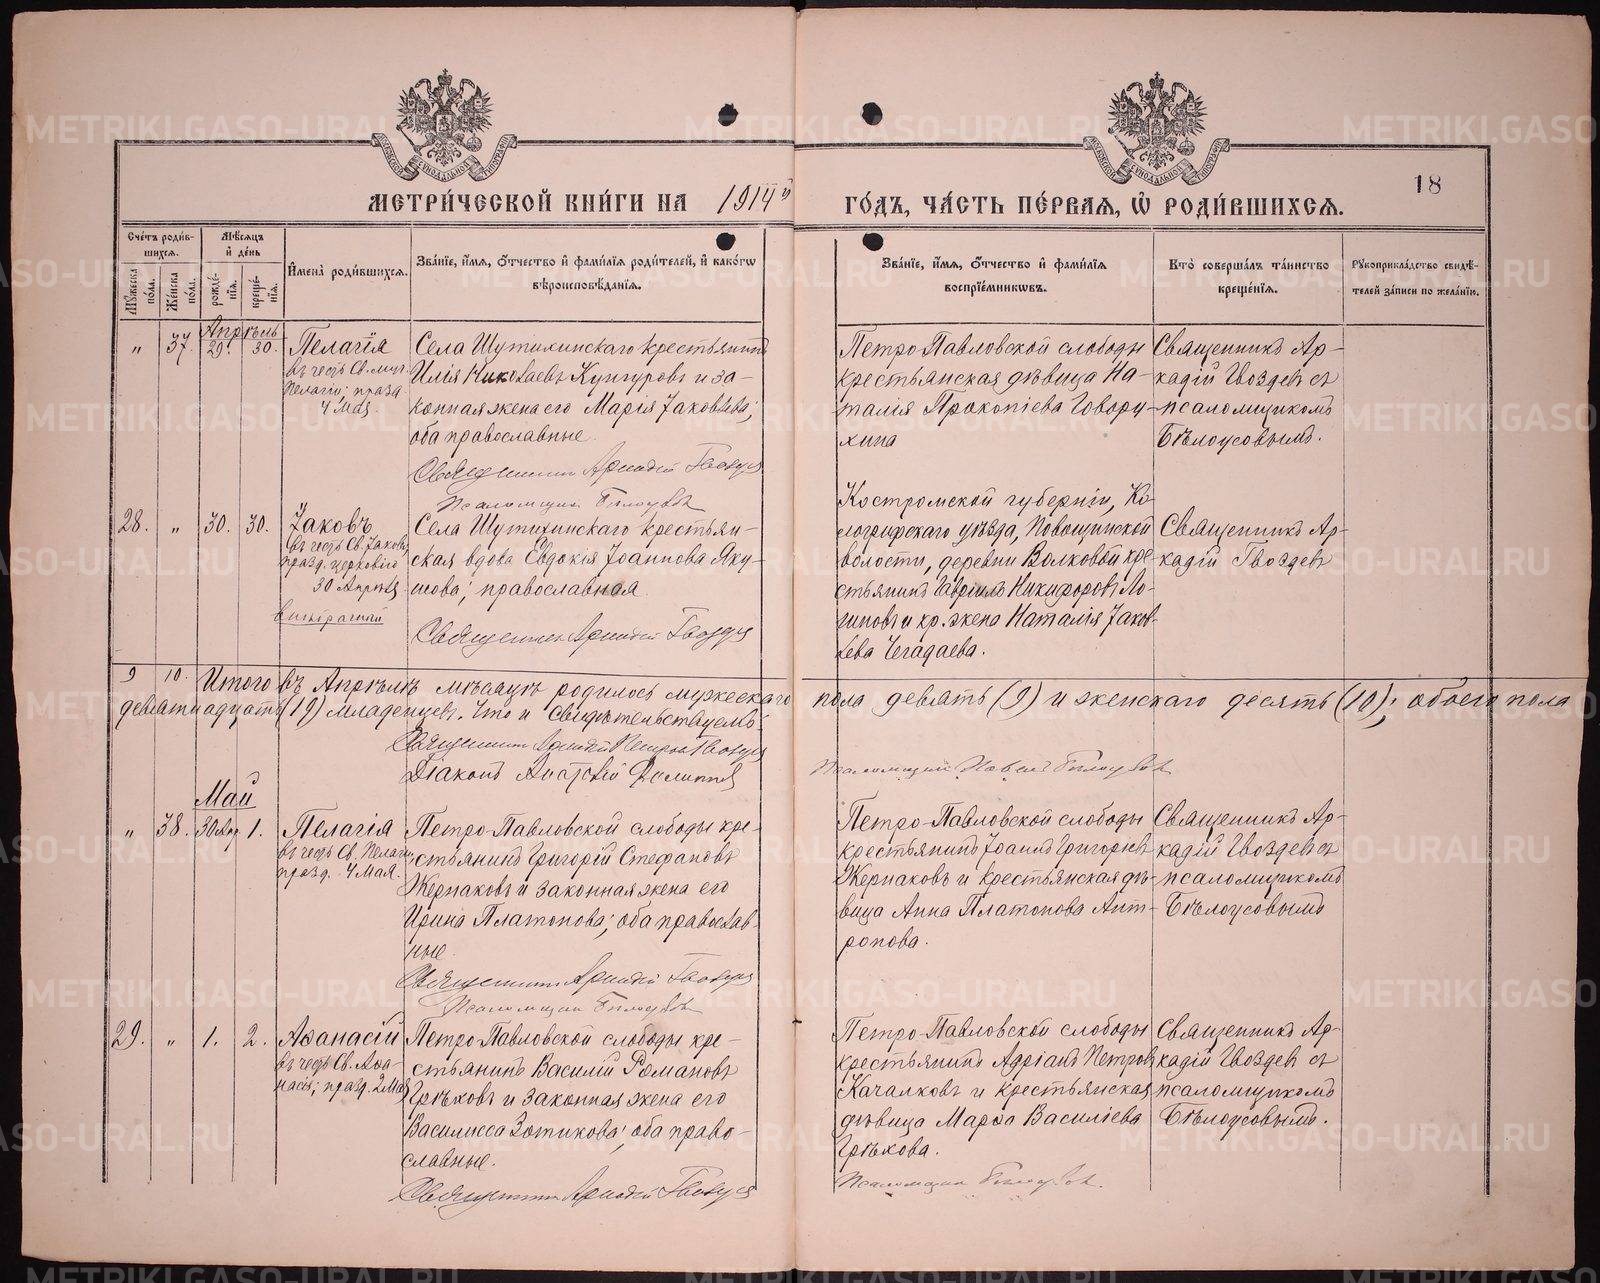 МЕТРИ́ЧЕСКОЙ КНИ́ГИ НА 1914й ГО́ДЪ, ЧА́СТЬ ПЕ́РВАЯ, Ѡ҆ РОДИ́ВШИХСЯ.
18
Сче́тъ роди́в-
шихся.
Мѣ́сяцъ
и҆ де́нь
Мꙋ́жеска по́ла.
Же́нска по́ла.
рожде́-
нїѧ.
креще́-
нїѧ.
И҆мена̀ роди́вшихся.
Зва́нїе, и҆́мя, ѻ҆́тчество и҆ фами́лїя роди́телей, и҆ како́гѡ
вѣроисповѣ́данїя.
Зва́нїе, и҆́мя, ѻ҆́тчество и҆ фами́лїя
воспрїе́мникѡвъ.
Кто̀ соверша́лъ та́инство
креще́нїя.
Рꙋкоприкла́дство свидѣ́-
телей за́писи по жела́нїю.
Апрѣль
" 37. 29. 30. Пелагія
въ честь Св. муч.
Пелагіи; празд.
4 Мая.
Села Шутихинскаго крестьянинъ
Илія Николаевъ Кунгуровъ и за-
конная жена его Марія Іаковлева;
оба православные.
Священникъ Аркадій Гвоздевъ
Псаломщикъ Бѣлоусовъ
Петро-Павловской слободы
крестьянская дѣвица На-
талія Прокопіева Говору-
хина
Священникъ Ар-
кадій Гвоздевъ съ
псаломщикомъ
Бѣлоусовымъ.
28. " 30. 30. Іаковъ
въ честь Св. Іакова,
празд. церковію
30 Апрѣля
Села Шутихинскаго крестьян-
ская вдова Евдокія Іоаннова Яку-
шова; православная.
Священникъ Аркадій Гвоздевъ
Костромской губерніи, Ко-
логрифскаго уѣзда,
волости, деревни Волковой кре-
стьянинъ Гавріилъ Никифоровъ Ло-
гиновъ и кр. жена Наталія Іаков-
лева Чегадаева.
Священникъ Ар-
кадій Гвоздевъ
9 10. Итого въ Апрѣлѣ мѣсяцѣ родилось мужескаго пола девять (9) и женскаго десять (10); обоего пола
девятнадцать (19) младенцевъ. Что и свидѣтельствуемъ:
Священникъ Аркадій Петровъ Гвоздевъ
Діаконъ
Псаломщикъ Павелъ Бѣлоусовъ
Май
" 38. 30 Апр. 1. Пелагія
въ честь Св. Пелагіи,
празд. 4 Мая.
Петро-Павловской слободы кре-
стьянинъ Григорій Стефановъ
Жернаковъ и законная жена его
Ирина Платонова; оба православ-
ные.
Священникъ Аркадій Гвоздевъ
Псаломщикъ Бѣлоусовъ
Петро-Павловской слободы
крестьянинъ Іоаннъ Григорьевъ
Жернаковъ и крестьянская дѣ-
вица Анна Платонова Ант-
ропова.
Священникъ Ар-
кадій Гвоздевъ съ
псаломщикомъ
Бѣлоусовымъ
29. " 1. 2. Аѳанасій
въ честь Св. Аѳа-
насія; празд. 2 Мая
Петро-Павловской слободы кре-
стьянинъ Василій Романовъ
Грѣховъ и законная жена его
Василисса Зотикова; оба право-
славные.
Священникъ Аркадій Гвоздевъ
Петро-Павловской слободы
крестьянинъ Адріанъ Петровъ
Качалковъ и крестьянская
дѣвица Марѳа Василіева
Грѣхова.
Псаломщикъ Бѣлоусовъ.
Священникъ Ар-
кадій Гвоздевъ съ
псаломщикомъ
Бѣлоусовымъ.
METRIKI.GASO-URAL.RU